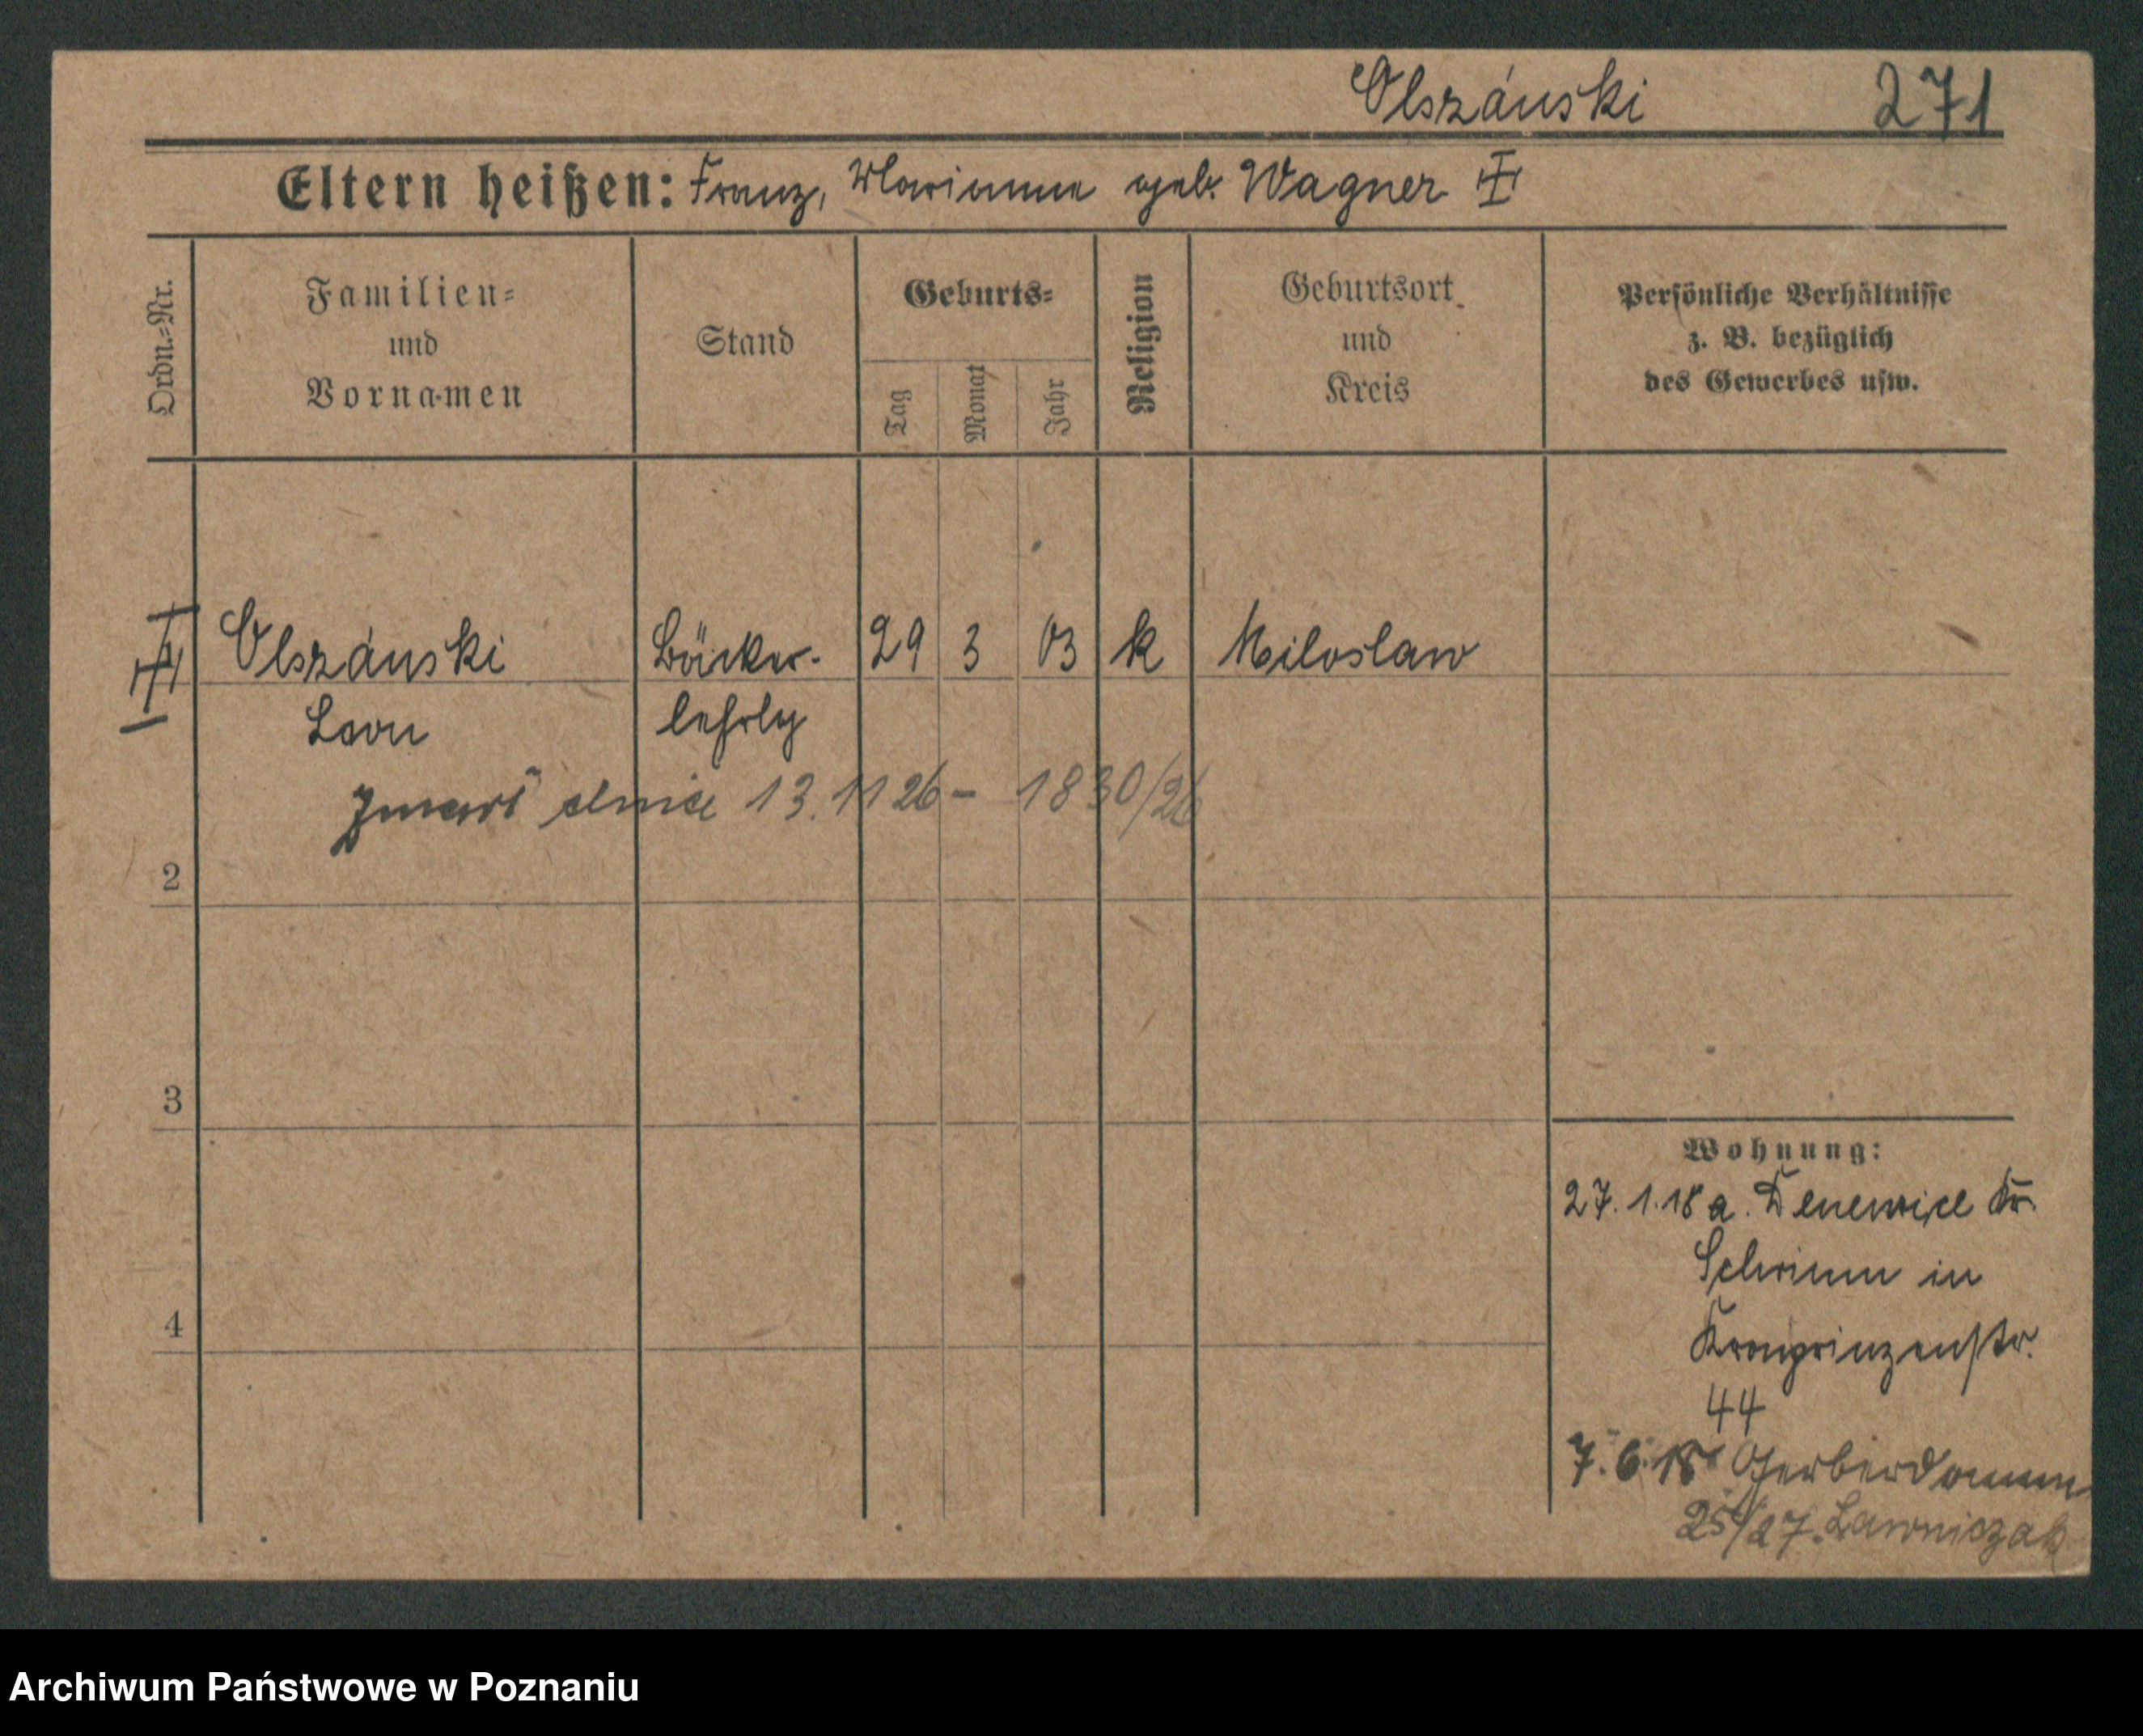 Olszánski 271
Eltern heißen: Franz, Marianne geb. Wagner
Ordn.=Nr.
Familien=
und
Vornamen
Stand
Geburts=
Tag
Monat
Jahr
Religion
Geburtsort
und
Kreis
Persönliche Verhältnisse
z. B. bezüglich
des Gewerbes usw.
Olszánski Bäcker- 29 3 03 k Miloslaw
Leon lehrlg
zmarł dnia 13.11 26 - 1830/26
2
3
4
Wohnung:
27.1.18 a. Kr.
Schrimm in
Kronprinzenstr.
44
7.6.18 Gerberdamm
25/27. Lawniczak
Archiwum Państwowe w Poznaniu